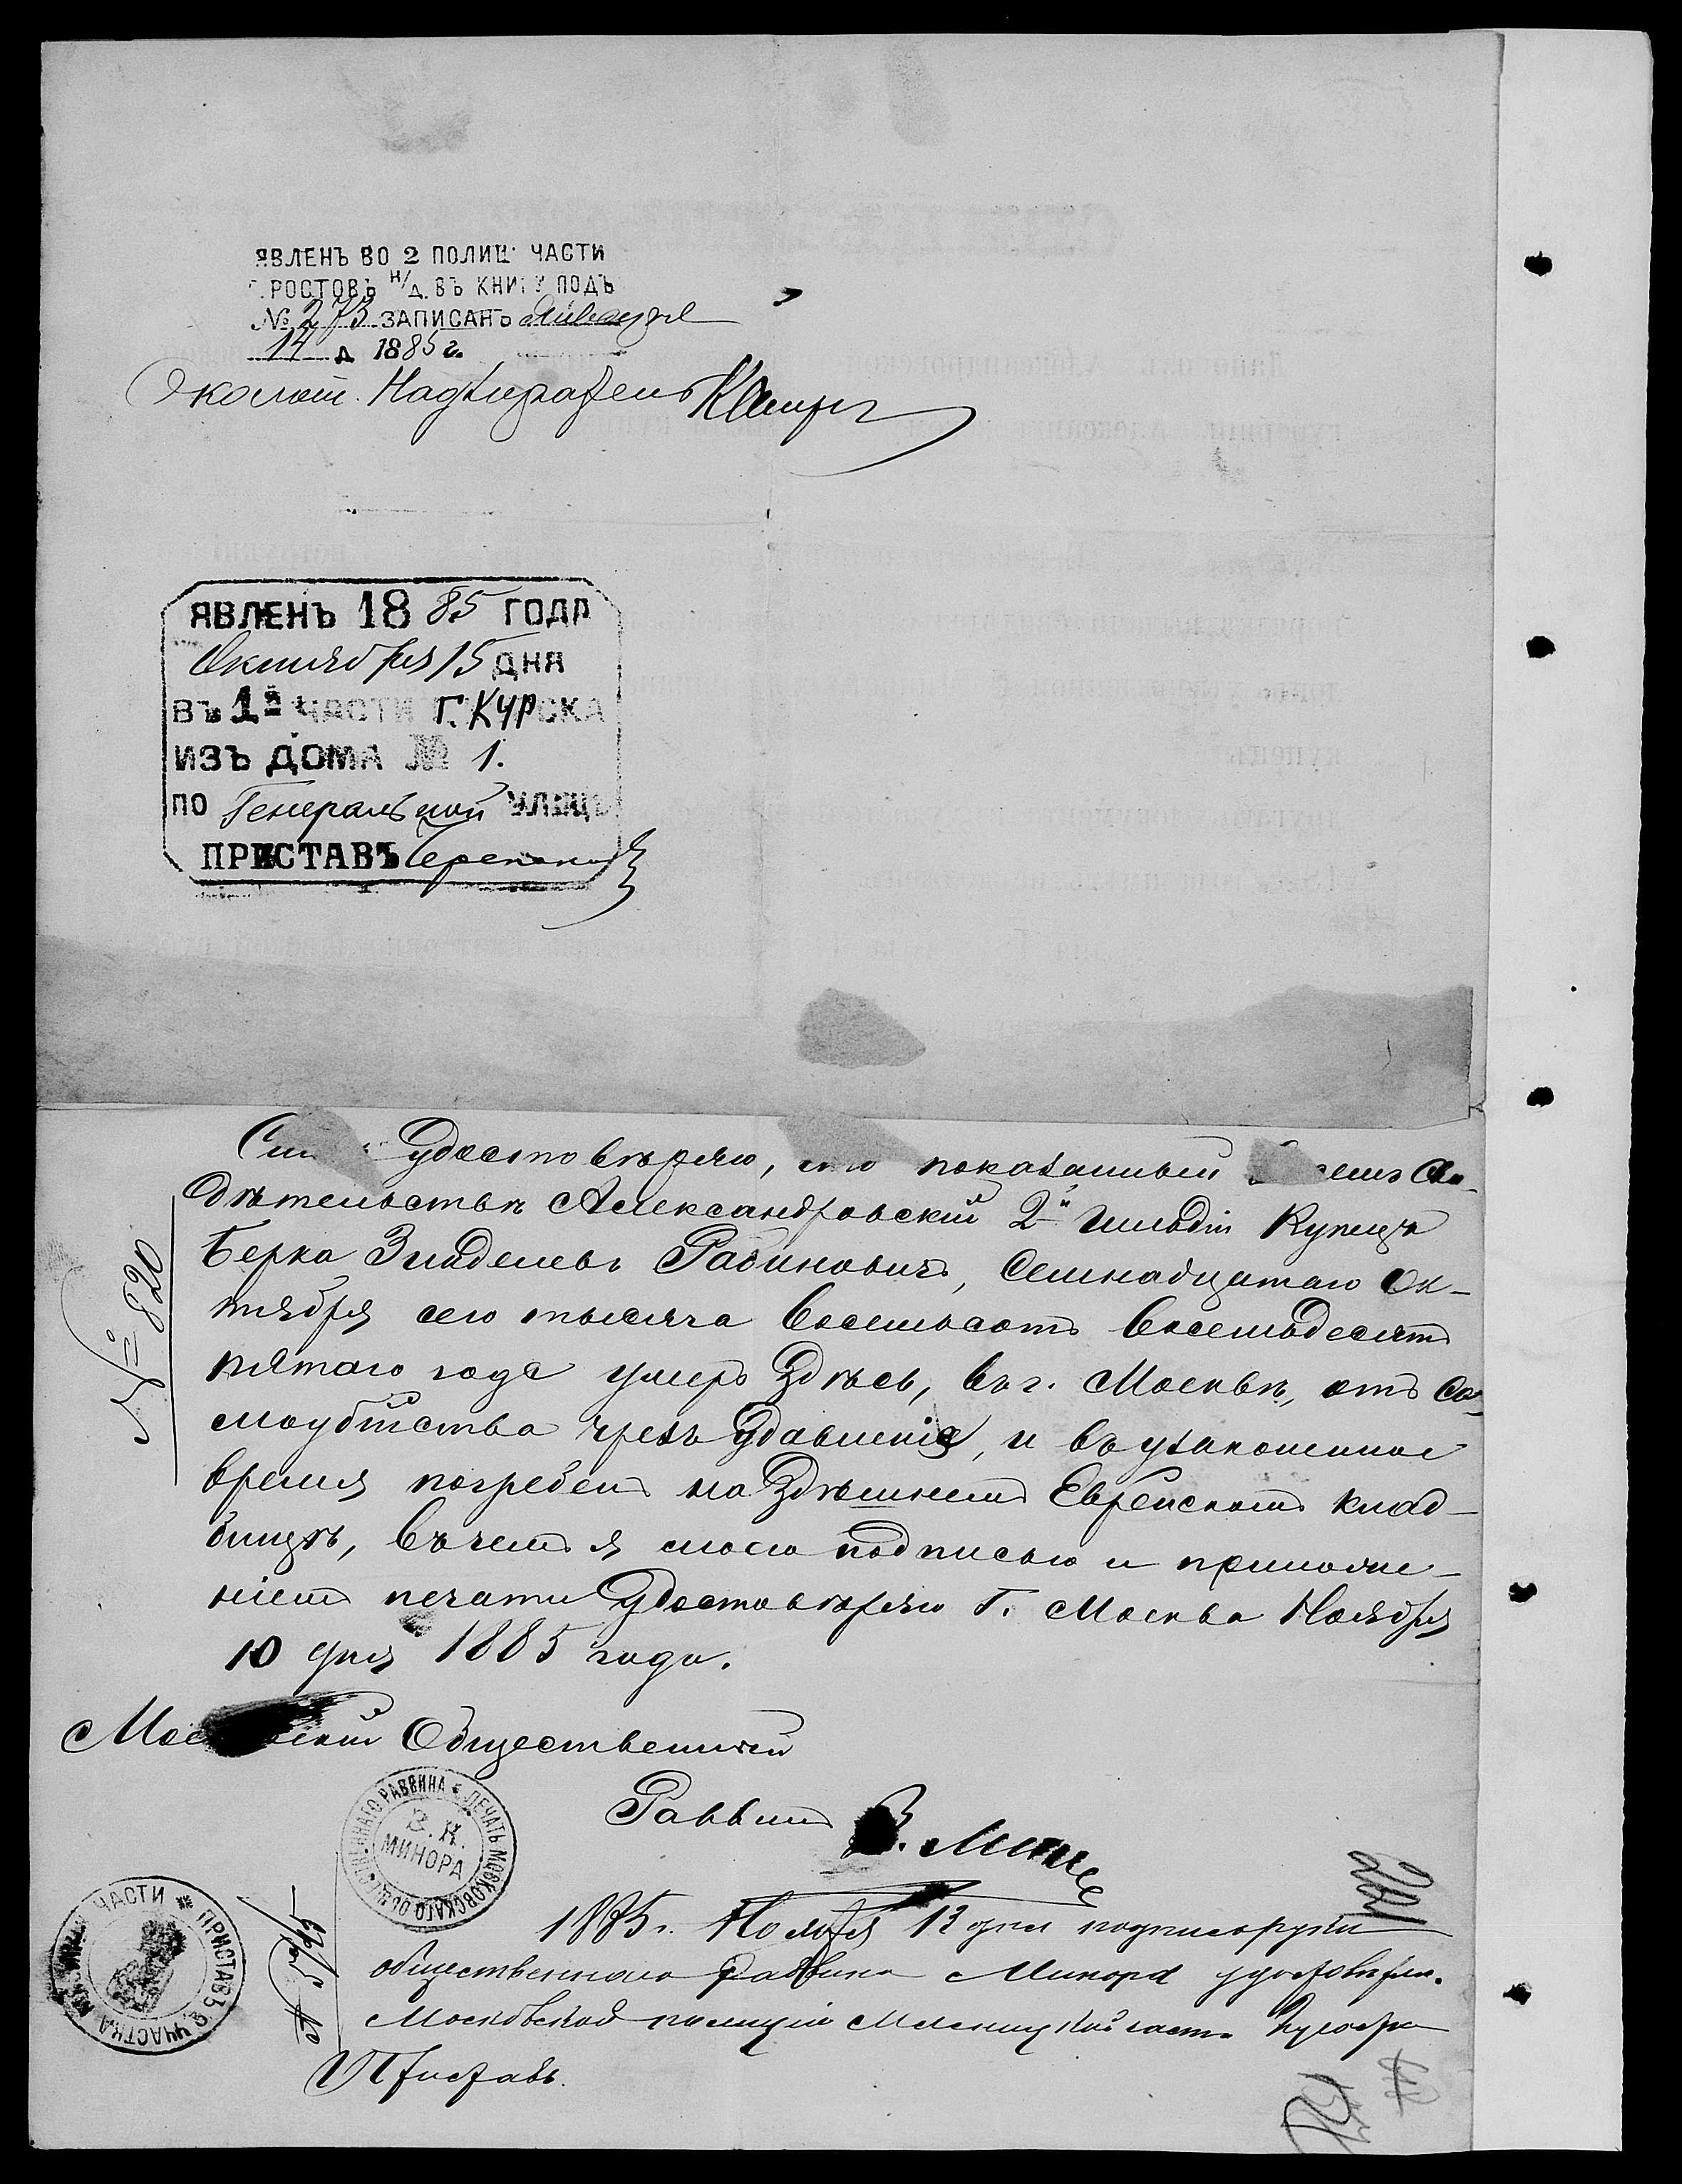 ЯВЛЕНЪ ВО 2 ПОЛИЦ. ЧАСТИ
Г. РОСТОВЪ Н/Д. ВЪ КНИГУ ПОДЪ
№ 273 ЗАПИСАНЪ
14 д 1885 г.
Околот. Надзиратель
ЯВЛЕНЪ 1885 ГОДА
Октября 15 ДНЯ
ВЪ 1й ЧАСТИ Г. КУРСКА
ИЗЪ ДОМА № 1.
ПО Генеральной УЛИЦЕ
ПРИСТАВЪ
№ 820
Симъ удостовѣряю, что показанный въ семъ Сви-
дѣтельствѣ Александровскій 2й Гильдіи Купецъ
Берка Зиделевъ Рабиновичъ, Семнадцатаго Ок-
тября сего тысяча Восемьсотъ Восемьдесятъ
пятаго года умеръ Здѣсь, въ г. Москвѣ, отъ Са-
моубійства чрезъ Удавленіе, и въ узаконенное
время погребенъ на Здѣшнемъ Еврейскомъ клад-
бищѣ, Въ чемъ я моею подписью и приложе-
ніемъ печати Удостовѣряю Г. Москва Ноября
10 дня 1885 года.
Московскій Общественный
Раввинъ З. Миноръ
ПЕЧАТЬ МОСКОВСКАГО ОБЩЕСТВЕННАГО РАВВИНА
З. К.
МИНОРА
1885 г. Ноября 13 дня подпись руки
общественнаго Раввина Минора удостовѣряю.
Московской полиціи Мясницкой части 2 участка
Приставъ.
ПРИСТАВЪ 2 УЧАСТКА МЯСНИЦ. ЧАСТИ